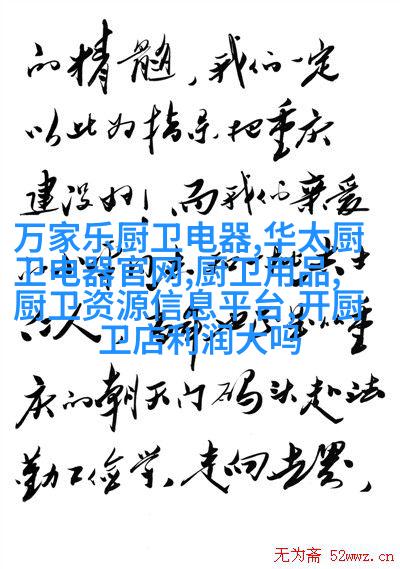 的精髓，我们一定
以此为指导把重庆
建设好！而我们亲爱
万家乐厨卫电器,华太厨
卫电器官网,厨卫用品,
厨卫资源信息平台,开厨
卫店利润大吗
的人，
重
庆的朝天门码头赴法
勤工俭学，走向世界，
无为斋 52wwz.cn